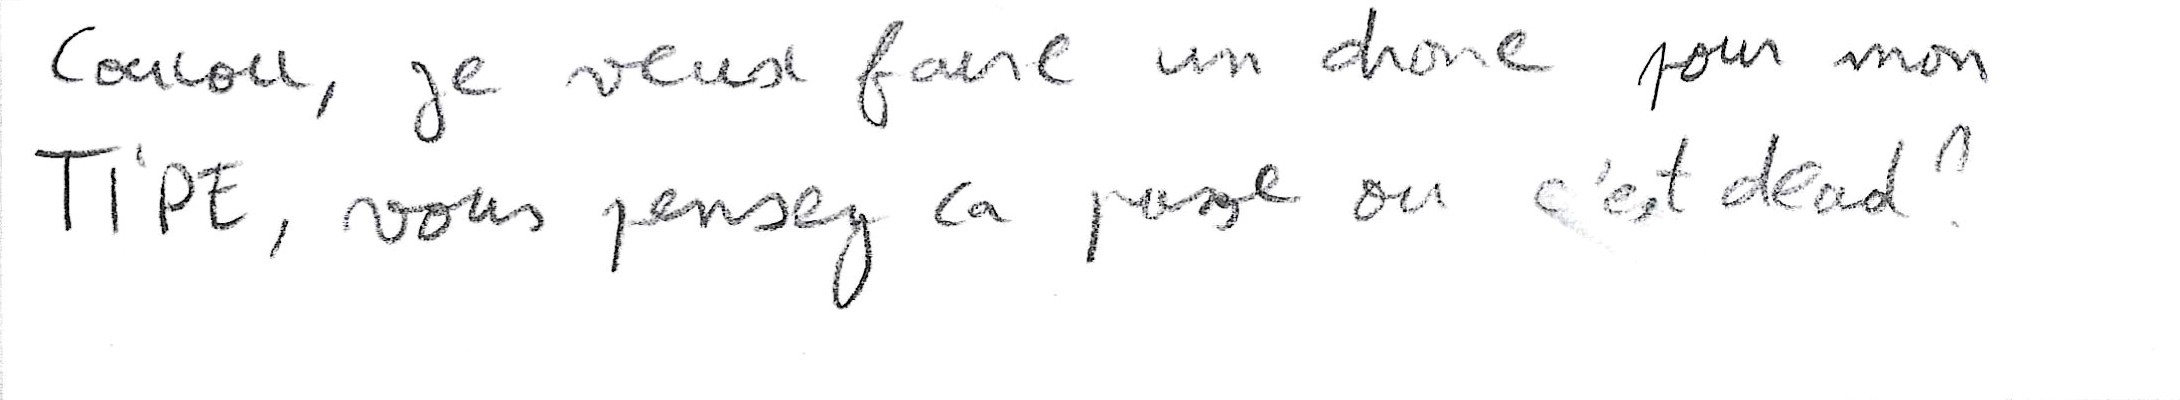 Coucou, je veux faire un drone pour mon
TIPE, vous pensez ca passe ou c'est dead ?